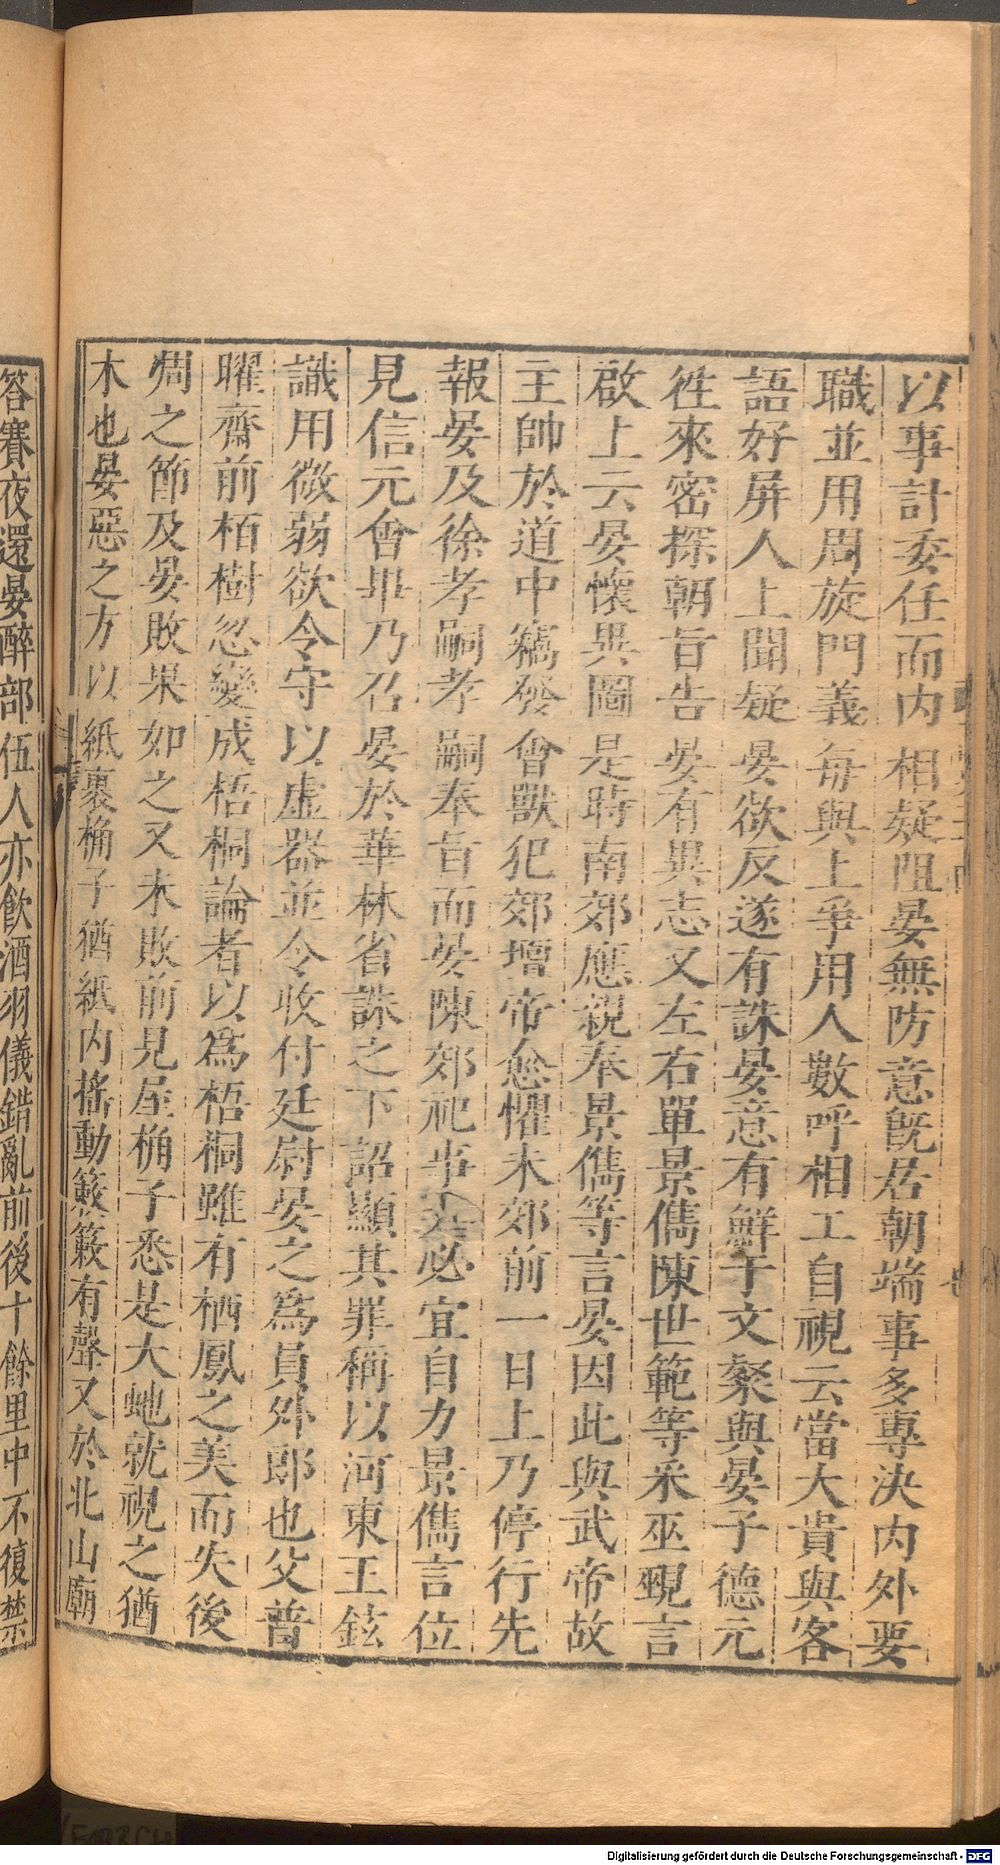 以事計委任而內相疑阻晏無防意旣居朝端事多專決內外要
職並用周旋門義每與上爭用人數呼相工自視云當大貴與客
語好屏人上聞疑晏欲反遂有誅晏意有鮮于文粲與晏子德元
徃來密探朝旨告晏有異志又左右單景儁陳世範等采巫覡言
啟上云晏懷異圖是時南郊應親奉景儁等言晏因此與武帝故
主帥於道中竊發會獸犯郊壇帝愈懼未郊前一日上乃停行先
報晏及徐孝嗣孝嗣奉旨而晏陳郊祀事大必宜自力景儁言位
見信元會畢乃召晏於華林省誅之下詔顯其罪稱以河東王鉉
識用微弱欲令守以虛器並令收付廷尉晏之爲員外郎也父普
曜齋前栢樹忽變成梧桐論者以爲梧桐雖有栖鳳之美而失後
凋之節及晏敗果如之又未敗前見屋桷子悉是大蛇就視之猶
木也晏惡之方以紙裹桷子猶紙內搖動蔌蔌有聲又於北山廟
答賽夜還晏醉部伍人亦飲酒羽儀錯亂前後十餘里中不復禁
Digitalisierung gefördert durch die Deutsche Forschungsgemeinschaft - DFG